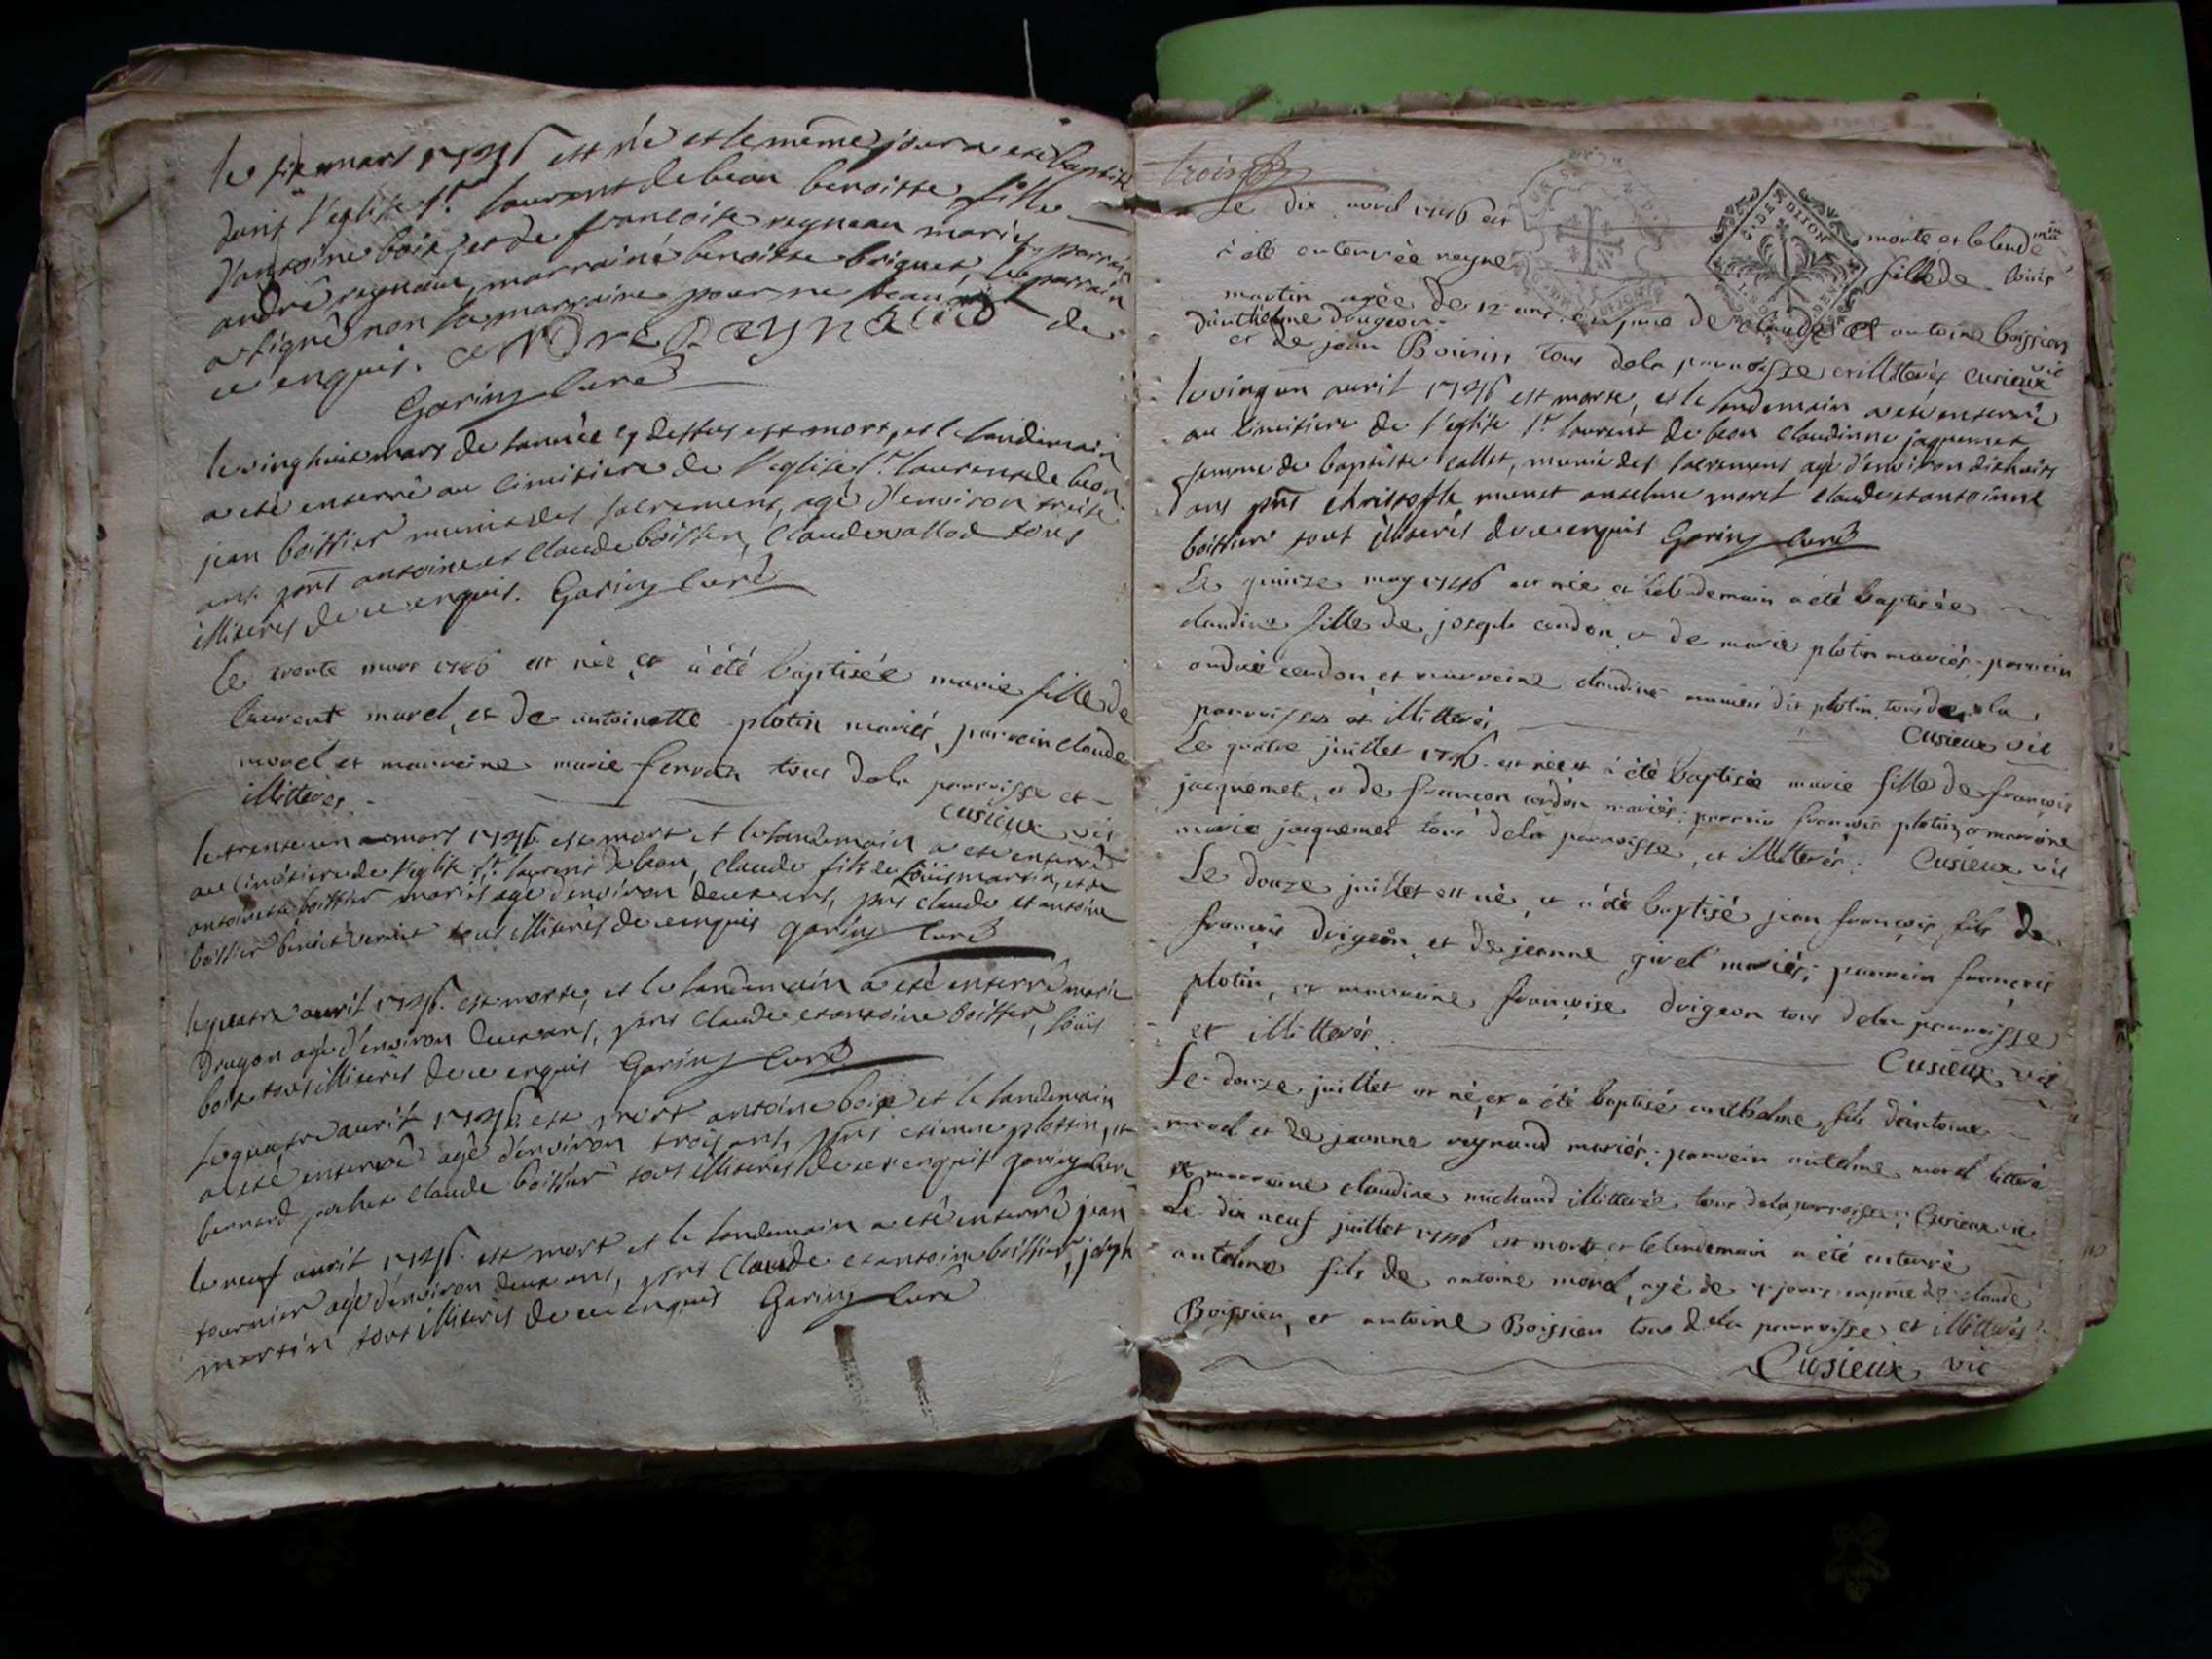 le six mars 1746 est née et le même jour a été baptisé
dans l'eglise st laurent de beon benoitte fille
d'antoine boix et de francoise reynaud mariés parrain
andré reynaud, marraine benoitte briguet, le parrain
a signé non la marraine pour ne scavoir de
ce enquis. andre Raynaud
Gariny curé
le vinghuit mars de lannée cy dessus est mort, et le landemain
a été enterré au cimitiere de l'eglise st laurent de beon
jean boissier munis des sacrements, agé d'environ treise
ans pnt antoine et claude boissier, claude vallod tous
illiterés de ce enquis. Gariny curé
Le trente mars 1746 est née et à été baptisée marie fille de
laurent morel, et de antoinette plotin mariés, parrein claude
morel et marreine marie tous dela parroisse et
illitterés
Cusieux vic
le trente un mars 1746 est mort et le landemain a été enterré
au cimitiere de l'eglise st laurent de beon, claude fils de Loüis martin, et de
antoinette boissier mariés agé d'environ deux ans, pnts claude et antoine
boissier benoit tous illiterés de ce enquis gariny curé
le quatre avril 1746. est morte, et le landemain a été enterré marie
drugon agée d'environ deux ans, pnts claude et antoine boissier, loüis
boix tous illiterés de ce enquis Gariny curé
le quatre avril 1746 est mort antoine boix et le landemain
a été enterré agé d'environ trois ans, pnts etienne plottin, et
bernard claude boissier tous illiterés de ce enquis gariny curé
le neuf avril 1746. est mort et le landemain a été enterré jean
tournier agé d'environ deux ans, pnts claude et antoine boissier, joseph
martin tous illiterés de ce enquis Gariny curé
trois
Le dix avril 1746 est morte et le lendemain
à été enterrée reyne fille de louis
G. DE DIJON
martin agée de 12 ans en pnce de claude et antoine boissieu
d'anthelme drugeon
et de jean Boivin tous dela parroisse et illitterés Cusieux vic
le vingt un avril 1746 est morte, et le landemain a été enterrée
au cimitiere de l'eglise st laurent de beon claudinne jaquemet
femme de baptiste callet, munie des sacrements agé d'environ dixhuit
ans pnts christophle monet anselme morel claude et antoinne
boissier tous illiterés de ce enquis Gariny curé
Le quinze may 1746 est née et le lendemain a été baptisée
claudine fille de joseph cendon et de marie plotin mariés; parrein
andré cendon et marreine claudine dit plotin tous de la
parroisse et illitterés
Cusieux vic
Le quatre juillet 1746 est née et à été baptisée marie fille de françois
jacquemet, et de françon cendon mariés; parrein françois plotin et marreine
marie jacquemet tous dela parroisse, et illitterés. Cusieux vic
Le douze juillet est né, et a été baptisé jean françois fils de
françois drigeon et de jeanne givel mariés; parrein françois
plotin, et marreine françoise drigeon tous dela parroisse
et illitterés
Cusieux vic
Le douze juillet est né, et a été baptisé anthelme, fils d'antoine
morel et de jeanne reynaud mariés; parrein antelme morel litteré
et marreine claudine michaud illitterée tous dela parroisse; Cusieux vic
Le dix neuf juillet 1746 est mort et le lendemain a été enterré
antelme fils de antoine morel, agé de 7 jours en pnce de claude
Boissieu, et antoine Boissieu tous dela parroisse et illitterés
Cusieux vic